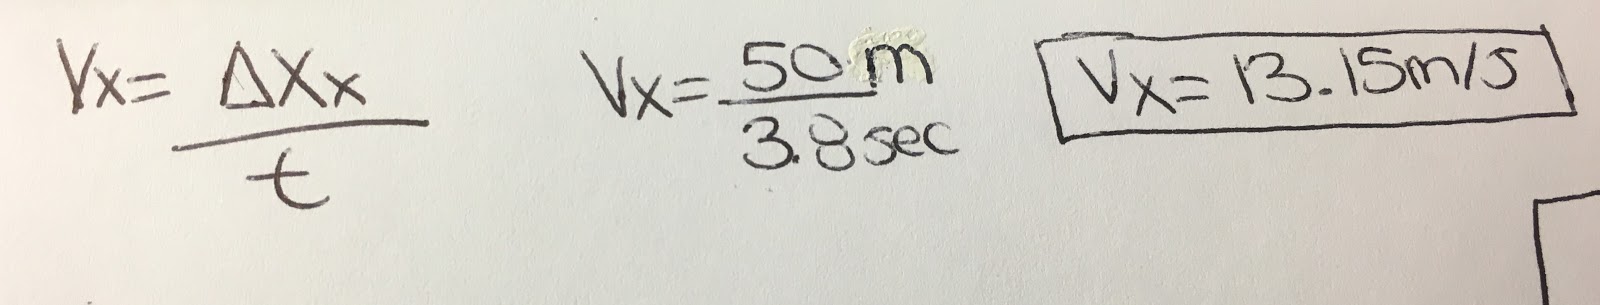 Vx = ΔXx / t
Vx = 50m / 3.8sec
Vx = 13.15m/s